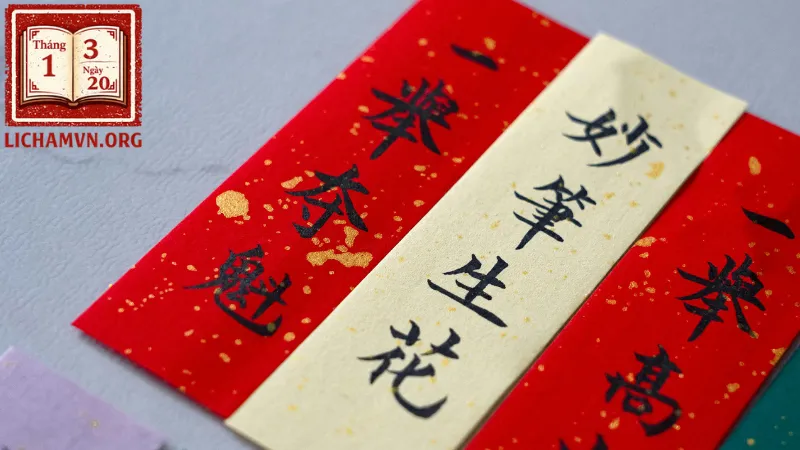 Tháng
1
3
Ngày
20
LICHAMVN.ORG
一舉夺魁
妙筆生花
一舉高